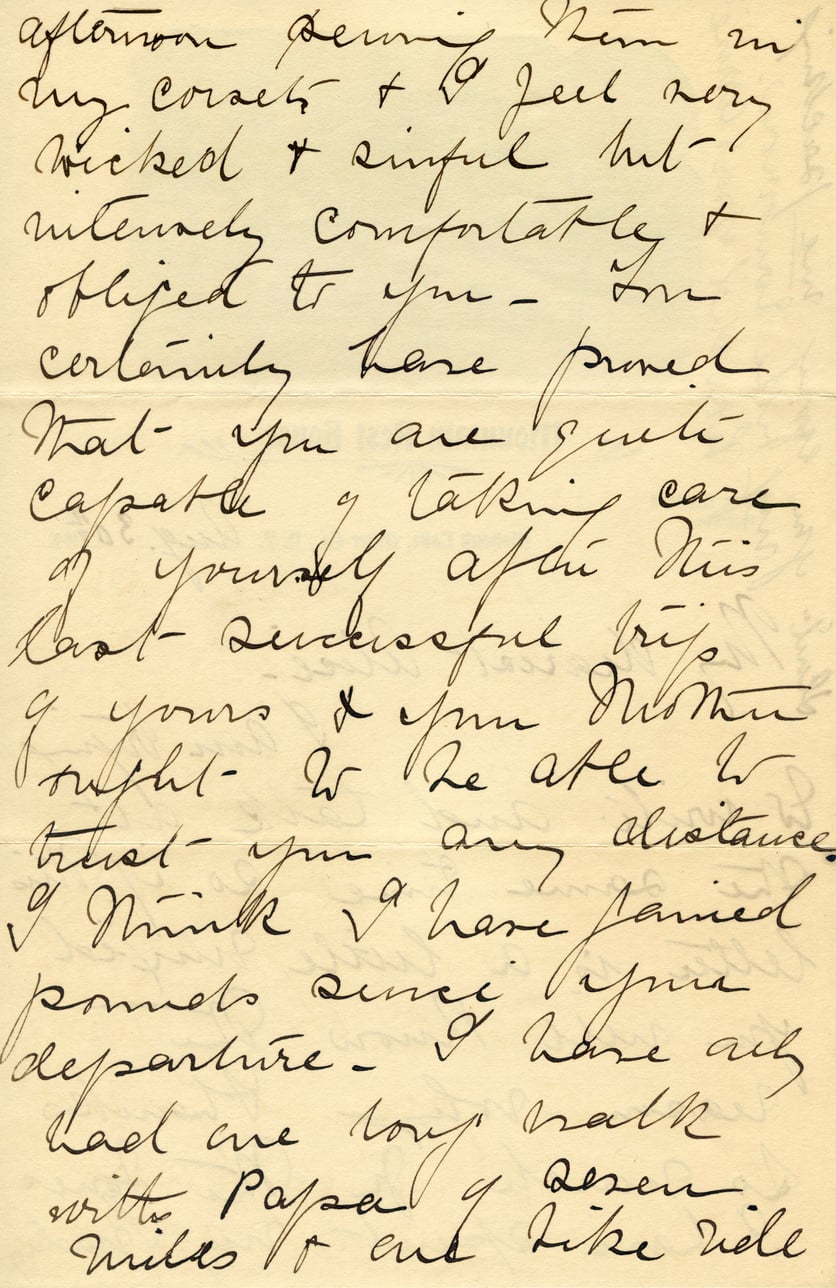 afternoon sewing them in
my corsets & I feel very
wicked & sinful but
intensely comfortable &
obliged to you - You
certainly have proved
that you are quite
capable of taking care
of yourself after this
last successful trip
of yours & your Mother
ought to be able to
trust you any distance.
I think I have gained
pounds since your
departure - I have only
had one long walk
with Papa of seven
miles & one bike ride